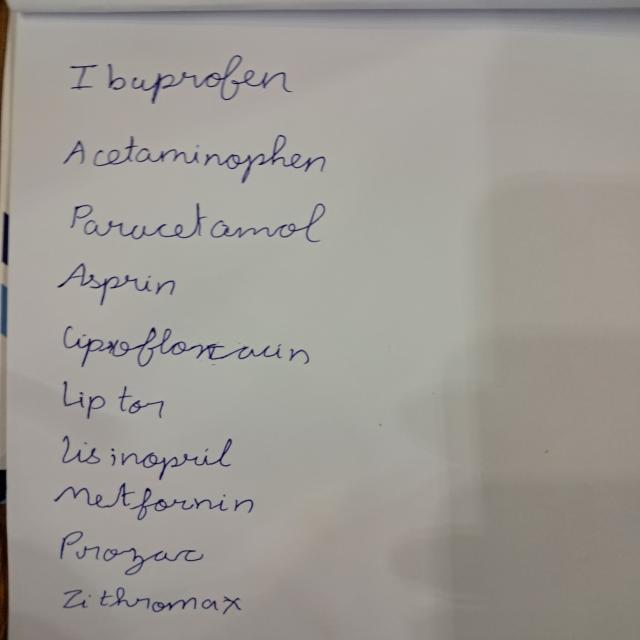 Ibuprofen
Acetaminophen
Paracetamol
Asprin
Ciprofloxacin
Liptor
Lisinopril
Metfornin
Prozac
Zithromax